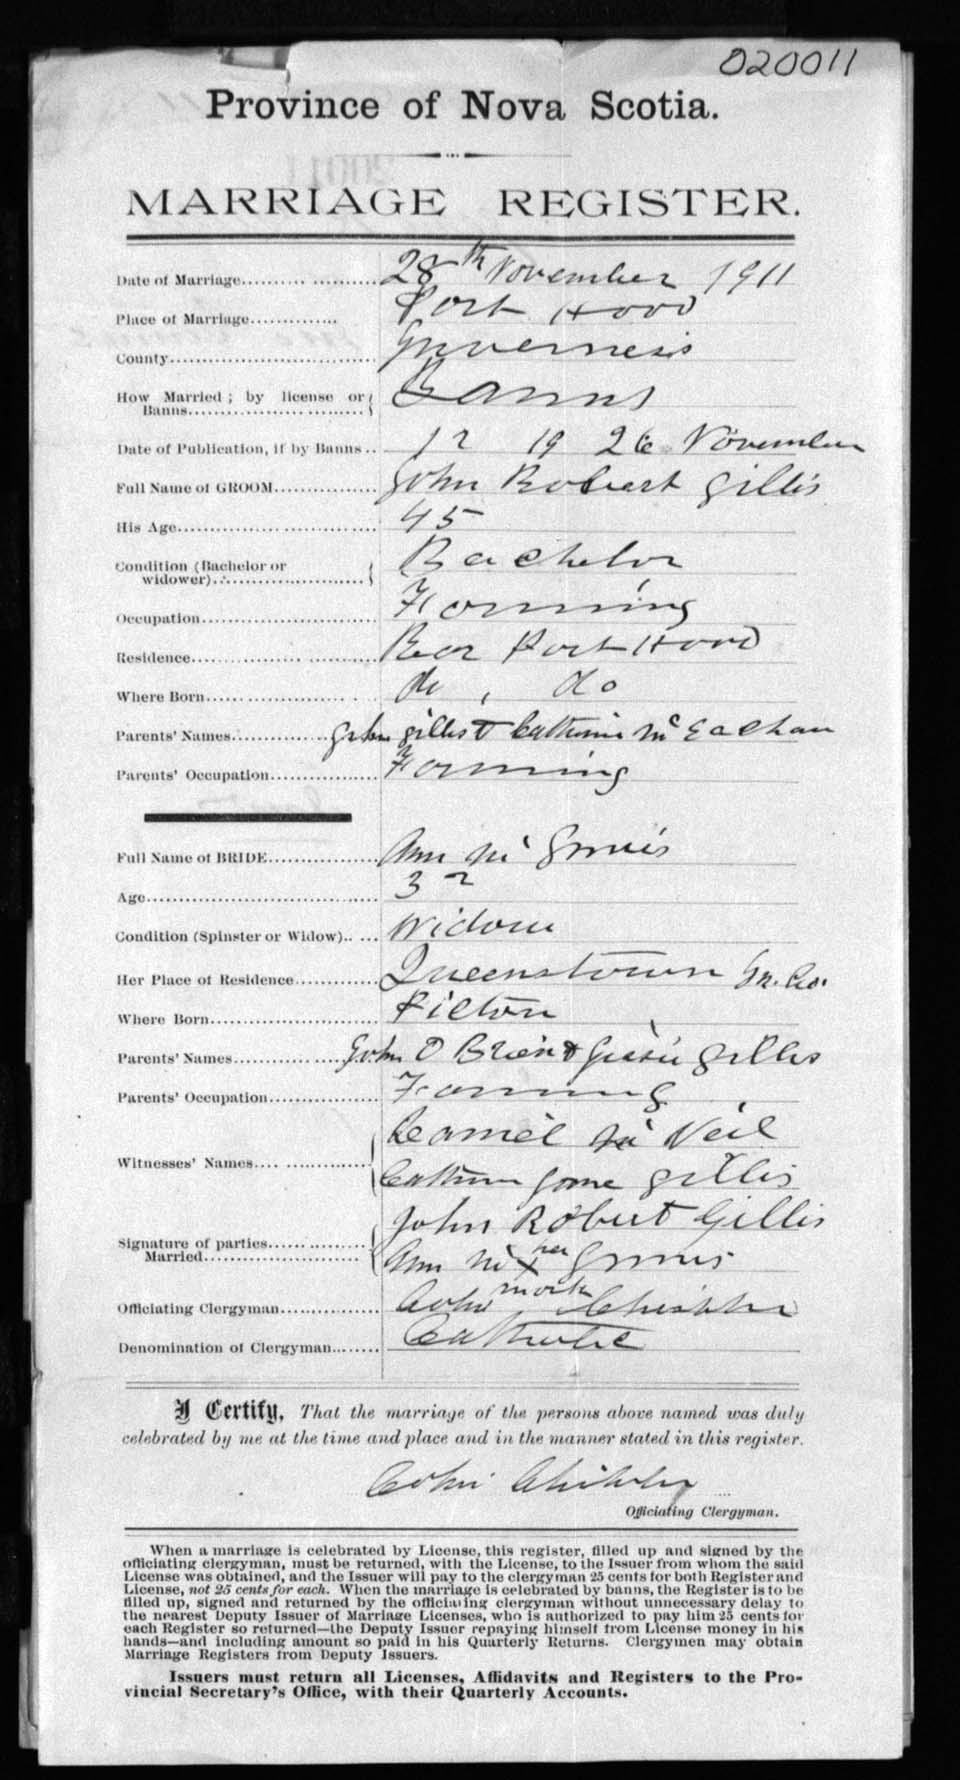 020011
Province of Nova Scotia.
MARRIAGE REGISTER.
Date of Marriage.......... 28th November 1911
Place of Marriage............. Port Hood
County............................... Inverness
How Married; by license or Banns.............................. Banns
Date of Publication, if by Banns.. 12 19 26 November
Full Name of GROOM............... John Robert Gillis
His Age............................. 45
Condition (Bachelor or widower)......................... Bachelor
Occupation.......................... Farming
Residence........................... Rear Port Hood
Where Born.......................... do , do
Parents' Names.............. John Gillis & Catherine Mc Eachan
Parents' Occupation................ Farming
Full Name of BRIDE................ Ann Mc Innis
Age................................. 32
Condition (Spinster or Widow).. ... Widow
Her Place of Residence............ Queenstown In. Co.
Where Born......................... Picton
Parents' Names................ John O Brien & Jessie Gillis
Parents' Occupation................ Farming
Witnesses' Names.... ............. Mc Neil
Gillis
Signature of parties Married..................... John Robert Gillis
Ann Mc X her Innis
mark
Officiating Clergyman.............. Colin Chisholm
Denomination of Clergyman........ Catholic
I Certify, That the marriage of the persons above named was duly
celebrated by me at the time and place and in the manner stated in this register.
Colin Chisholm
Officiating Clergyman.
When a marriage is celebrated by License, this register, filled up and signed by the
officiating clergyman, must be returned, with the License, to the Issuer from whom the said
License was obtained, and the Issuer will pay to the clergyman 25 cents for both Register and
License, not 25 cents for each. When the marriage is celebrated by banns, the Register is to be
filled up, signed and returned by the officiating clergyman without unnecessary delay to
the nearest Deputy Issuer of Marriage Licenses, who is authorized to pay him 25 cents for
each Register so returned—the Deputy Issuer repaying himself from License money in his
hands—and including amount so paid in his Quarterly Returns. Clergymen may obtain
Marriage Registers from Deputy Issuers.
Issuers must return all Licenses, Affidavits and Registers to the Pro-
vincial Secretary's Office, with their Quarterly Accounts.